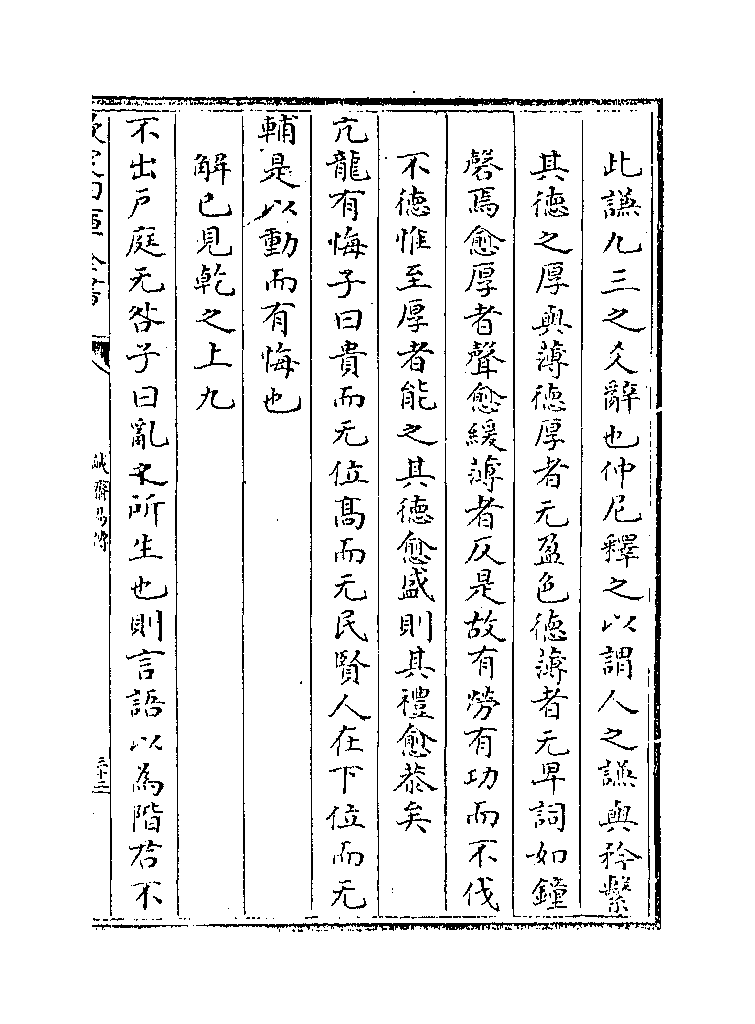 此謙九三之爻辭也仲尼釋之以謂人之謙與矜繫
其德之厚與薄德厚者无盈色德薄者无卑詞如鐘
磬焉愈厚者聲愈緩薄者反是故有勞有功而不伐
不德惟至厚者能之其德愈盛則其禮愈恭矣
亢龍有悔子曰貴而无位髙而无民賢人在下位而无
輔是以動而有悔也
解已見乾之上九
不出戸庭无咎子曰亂之所生也則言語以為階君不
誠齋易傳
三十二